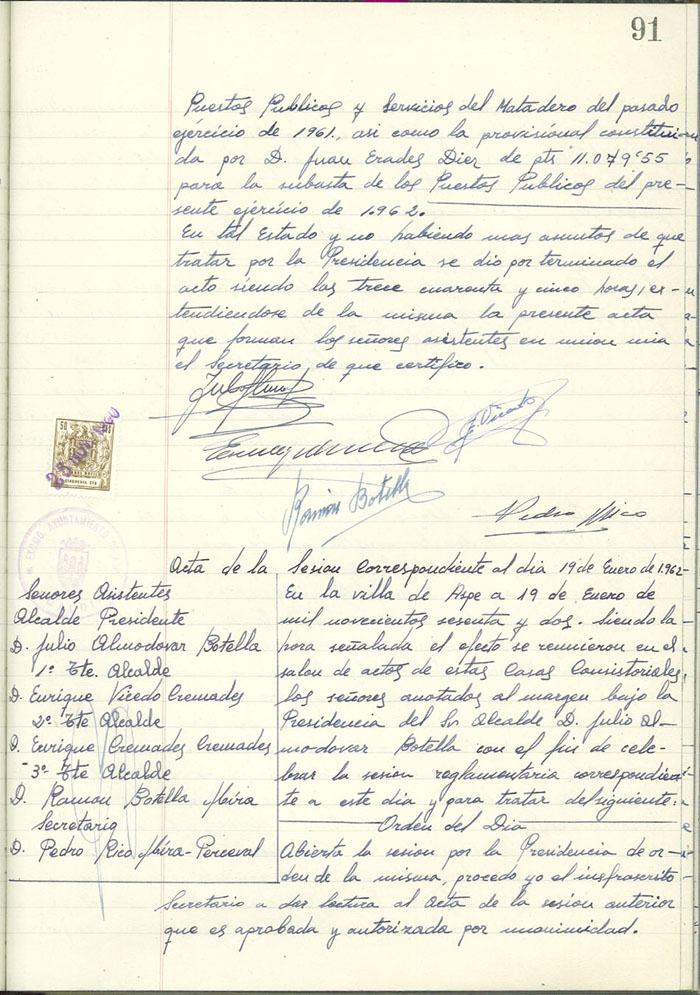 91
Puestos Publicos y Servicios del Matadero del pasado
ejercicio de 1961., asi como la provisional constitui-
da por D. Juan Erades Diez de pts 11.079'55
para la subasta de los Puestos Publicos del pre-
sente ejercicio de 1.962.
En tal Estado y no habiendo mas asuntos de que
tratar por la Presidencia se dio por terminado el
acto siendo las trece cuarenta y cinco horas, ex-
tendiendose de la misma la presente acta
que forman los señores asistentes en union mia
el Secretario, de que certifico.
E. Vicedo
Ramon Botella
Pedro Rico
50
EXCMO. AYUNTAMIENTO
Acta de la Sesion Correspondiente al dia 19 de Enero de 1.962
Señores Asistentes
Alcalde Presidente
D. Julio Almodovar Botella
1º Tte. Alcalde
D. Enrique Vicedo Cremades
2º Tte Alcalde
D. Enrique Cremades Cremades
3º Tte Alcalde
D. Ramon Botella Mira
Secretario
D. Pedro Rico Mira-Perceval
En la villa de Aspe a 19 de Enero de
mil novecientos sesenta y dos. Siendo la
hora señalada el efecto se reunieron en el
salon de actos de estas Casas Consistoriales
los señores anotados al margen bajo la
Presidencia del Sr Alcalde D. Julio Al-
modovar Botella con el fin de cele-
brar la sesion reglamentaria correspondien-
te a este dia y para tratar del siguiente:
Orden del Dia
Abierta la sesion por la Presidencia de or-
den de la misma, procedo yo el insfrascrito
Secretario a dar lectura al Acta de la sesion anterior
que es aprobada y autorizada por unanimidad.